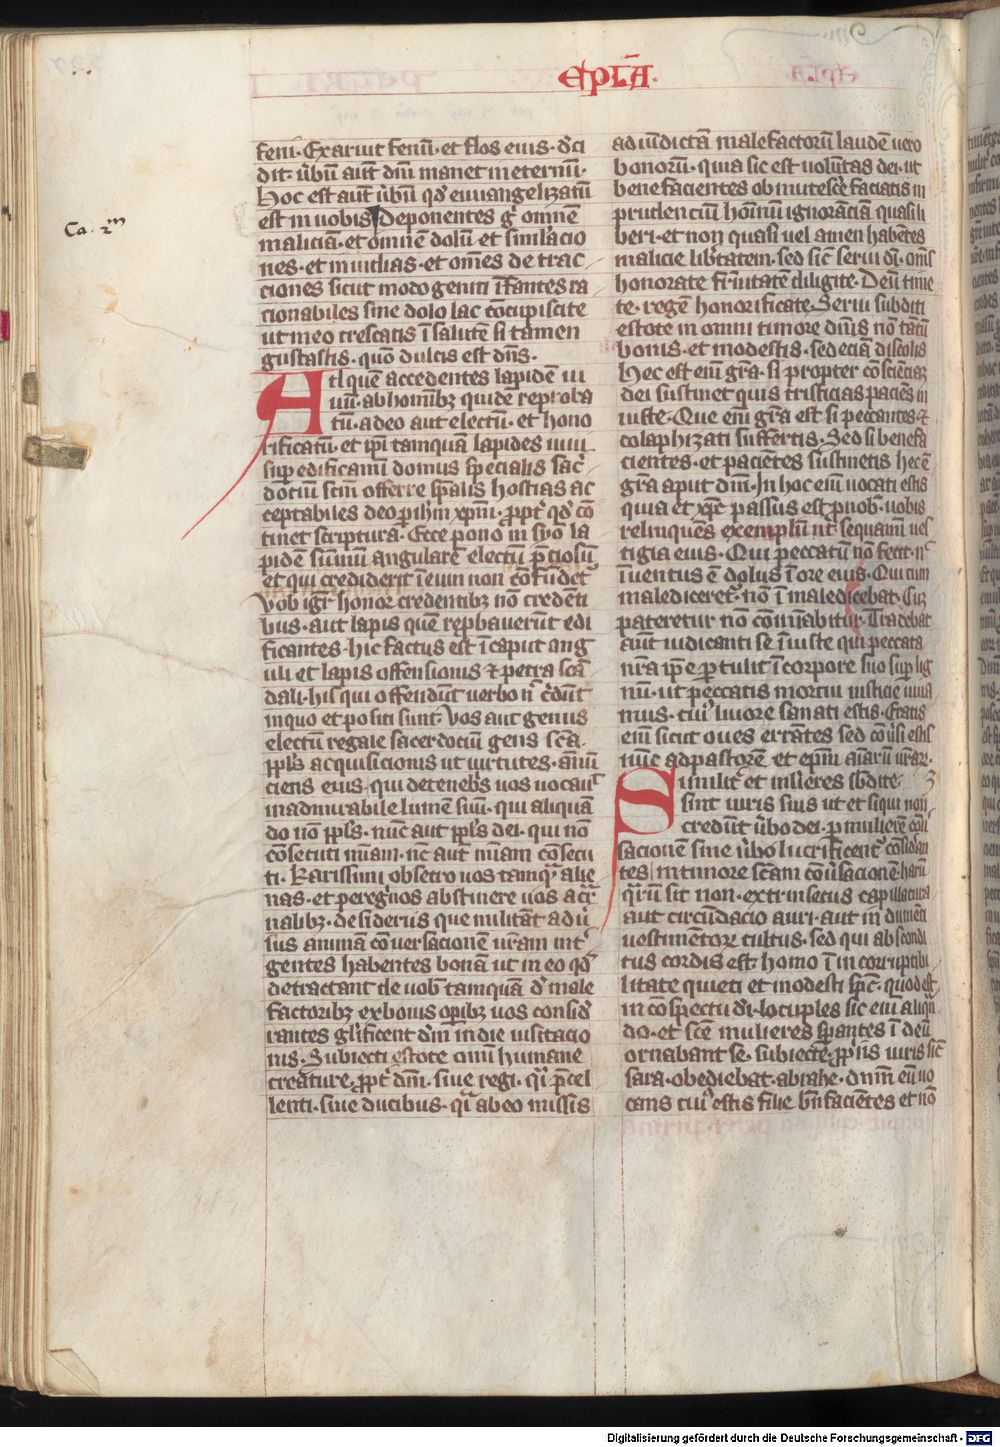 Epl̄A.
feni. Exaruit fenū. et flos eius. dēci
dit. ūbū aūt dn̄i manet in eternū.
Hoc est aūt ūbū qd̄ euuangelizatū
est in uobis Deponentes gͦ omnē
Ca. 2ᵐ
maliciā. et omnē dolū. et similacio
nes. et inuidias. et om̄es detrac
ciones sicut modo geniti īfantes ra
cionabiles sine dolo lac cōcupiscite
ut in eo crescatis ī salutē si tamen
gustastis. quō dulcis est dn̄s.
Atl quē accedentes lapidē ui
uū. ab hominib3 quidē reproba
tū. a deo aut electū. et hono
rificatū. et ip̄i tamquā lapides uiui
sup edificamī domus specialis sac̄
dociū scm̄ offerre sp̄alis hostias ac
ceptabiles deo p ih̄m xp̄m. ppt̄ qd̄ cō
tinet scriptura. Ecce pono in syo la
pidē sūmū angularē electū p̄ciosū
et qui crediderit ī eum non cōfūdet᷑
Vob igr̄ honor credentib3 nō credēti
bus. aut lapis quē rep̄bauerūt edi
ficantes. hic factus est ī caput ang
uli et lapis offensionis ⁊ petra scā
dali. his qui offendūt uerbo n̄ c̄dūt
in quo et positi sunt. Vos aut genus
electū regale sacerdociū gens sc̄a.
ppl̄s acquisicionis ut uirtutes. ānū
cietis eius. qui de tenebs̄ uos uocauit
in admirabile lumē suū. qui aliquā
do nō ppl̄s. nūc aut ppl̄s dei. qui nō
cōsecuti m̄iam. nc̄ aut m̄iam cōsecu
ti. Karissimi obsecro uos tamqͣ alie
nas. et peregͥnos abstinere uos a cͣr
nalib3. desideriis que militāt adū
sus animā cōuersacionē ur̄am int᷑
gentes habentes bonā ut in eo qd̄
detractant de uob̄ tamquā d̄ male
factorib3 ex bonis opib3 uos consid̄
rantes glīficent dm̄ in die uisitacio
nis. Subiecti estote omī humane
creature. ppt̄ dm̄. siue regi. qͣi p̄cel
lenti. siue ducibus. qͣi ab eo missis
ad uīdictā malefactorū laudē uero
bonorū. quia sic est uolūtas dei. ut
benefacientes obmutesc̄e faciatis in
prudenciū hoīnū ignorāciā quasi li
beri. et non quasi uelamen habētes
malicie lib̄tatem. sed sic̄ serui dī. om̄s
honorate fr̄nitatē diligite. Deū time
te. regē honorificate. Serui subditi
estote in omni timore dn̄is nō tātū
bonis. et modestis. sed eciā discolis
Hec est eī gr̄a. si propter cōsciēciā
dei sustinet quis tristicias paciēs in
iuste. Que eī gr̄a est si peccantes. ⁊
colaphizati suffertis. Sed si benefa
cientes. et paciētes sustinetis hec ē
gr̄a aput dm̄. In hoc eī uocati estis
quia et xp̄c passus est p nob̄. uobis
relinquēs exemplū ut sequamī ues
tigia eius. Qui peccatū nō fecit. n̄
īuentus ē dolus ī ore eius. Qui cum
malediceret᷑. nō ī maledicebat. Cū
pateretur nō cōmīabitur. Tradebat
aūt iudicanti se īiuste qui peccata
nr̄a ip̄e p tulit ī corpore suo sup lig
nū. ut peccatis mortui iusticie uiua
mus. cuiͥ liuore sanati estis. Eratis
eī sicut oues errātes sed cōūsi estis
nūc ad pastorē et ep̄m aīarū ur̄arū.
Similit᷑ et mlieres sb̄dite 3
sint uiris suis ut et si qui non
credūt ūbo dei. p mulierē cōū
sacionē sine ūbo lucrificent᷑ cōsid̄an
tes in timore sc̄am cōūsacionē. harū
qͣrū sit non. extrinsecus capillatura
aut circūdacio auri. aut indumēti
uestimētorū cultus. sed qui abscondi
tus cordis est. homo ī incorruptibi
litate quieti et modesti sp̄c. quod est.
in cōspectu dī. locuples sic eī aliqn̄
do. et sc̄e mulieres sp̄antes ī deū
ornabant se. subiecte. pp̄is uiris sic̄
sara. obediebat. abrahe. dnm̄ eū uo
cans cuiͥ estis filie bn̄facientes et nō
Digitalisierung gefördert durch die Deutsche Forschungsgemeinschaft - DFG